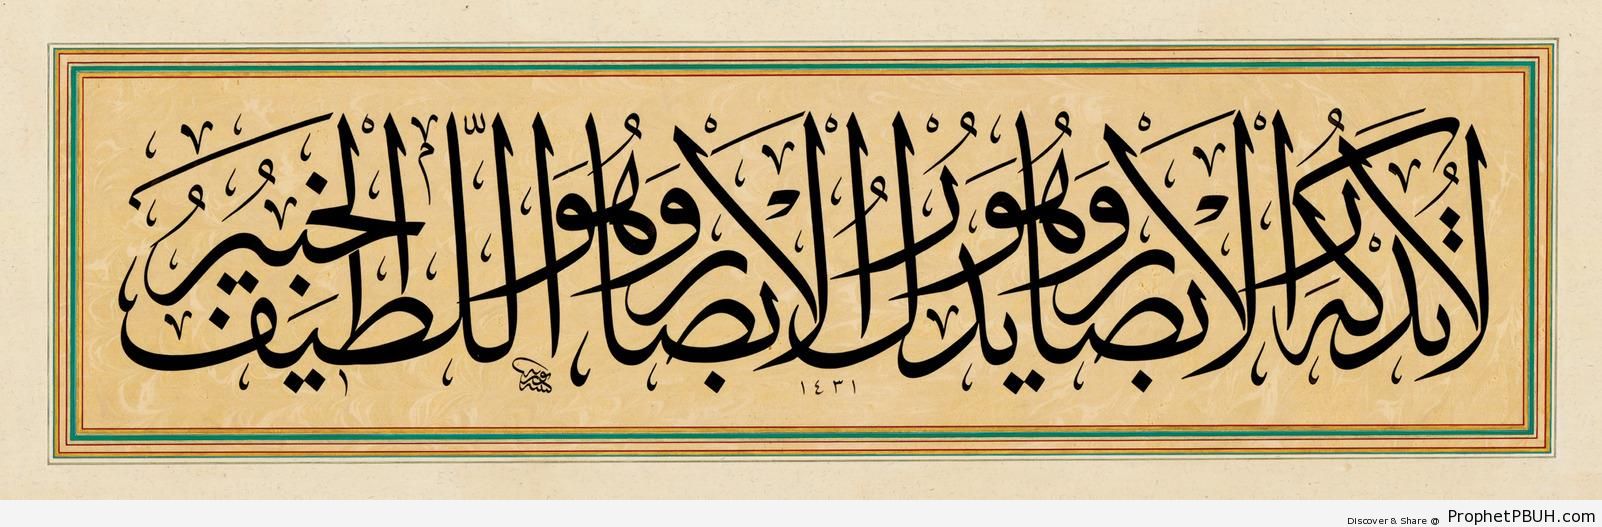 لَا تُدْرِكُهُ الْأَبْصَارُ وَهُوَ يُدْرِكُ الْأَبْصَارَ وَهُوَ اللَّطِيفُ الْخَبِيرُ
١٤٣١
Discover & Share @ ProphetPBUH.com